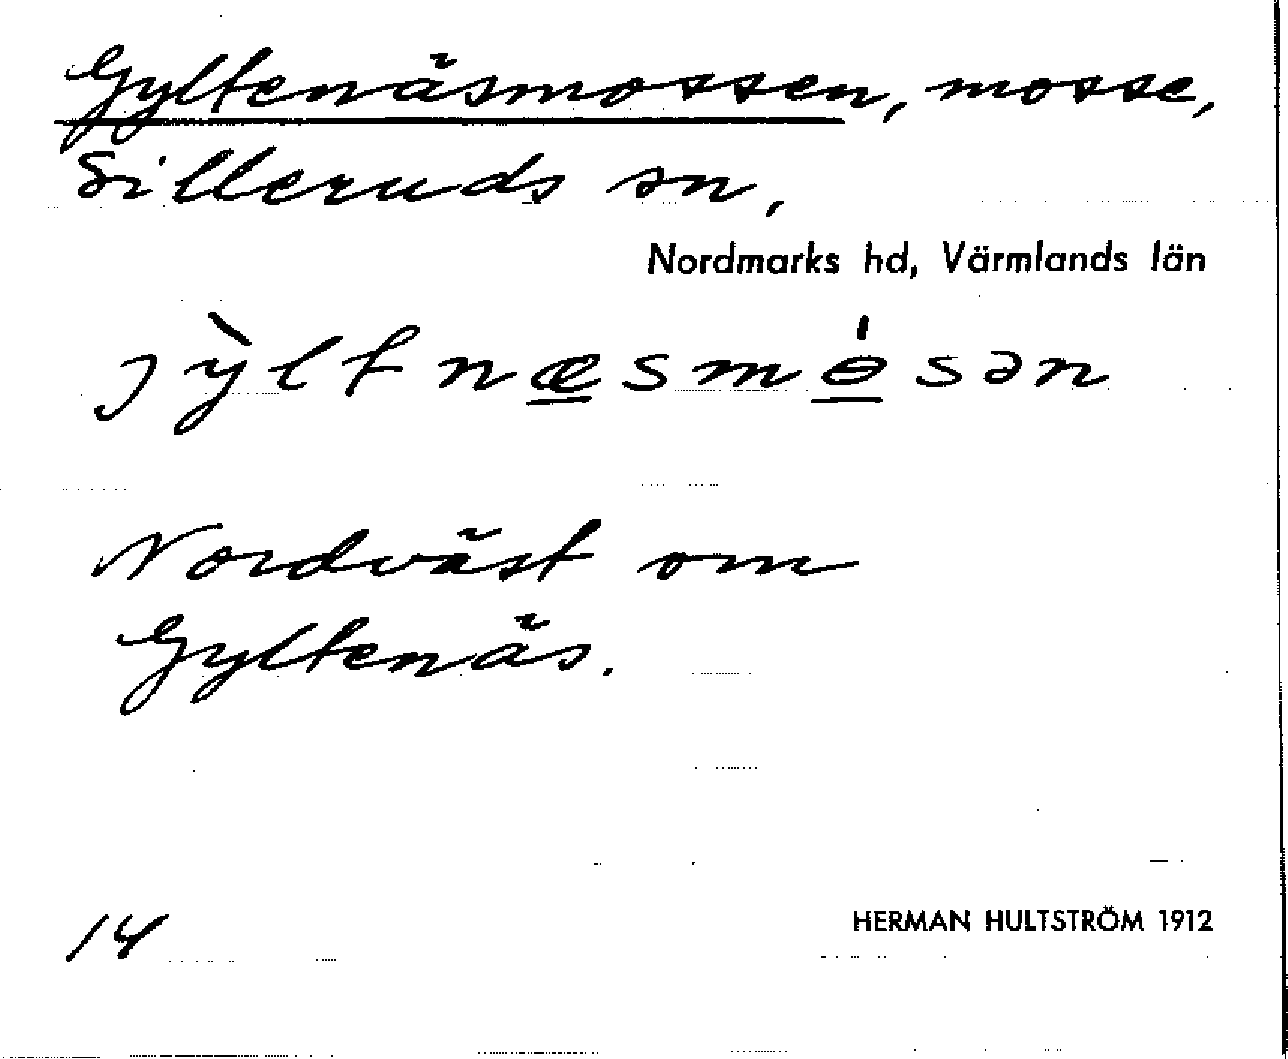 Gyltenäsmossen, mosse,
Silleruds sn,
Nordmarks hd, Värmlands län
jỳltnæ̲smɵ̲́sən
Nordväst om
Gyltenäs.
14
HERMAN HULTSTRÖM 1912